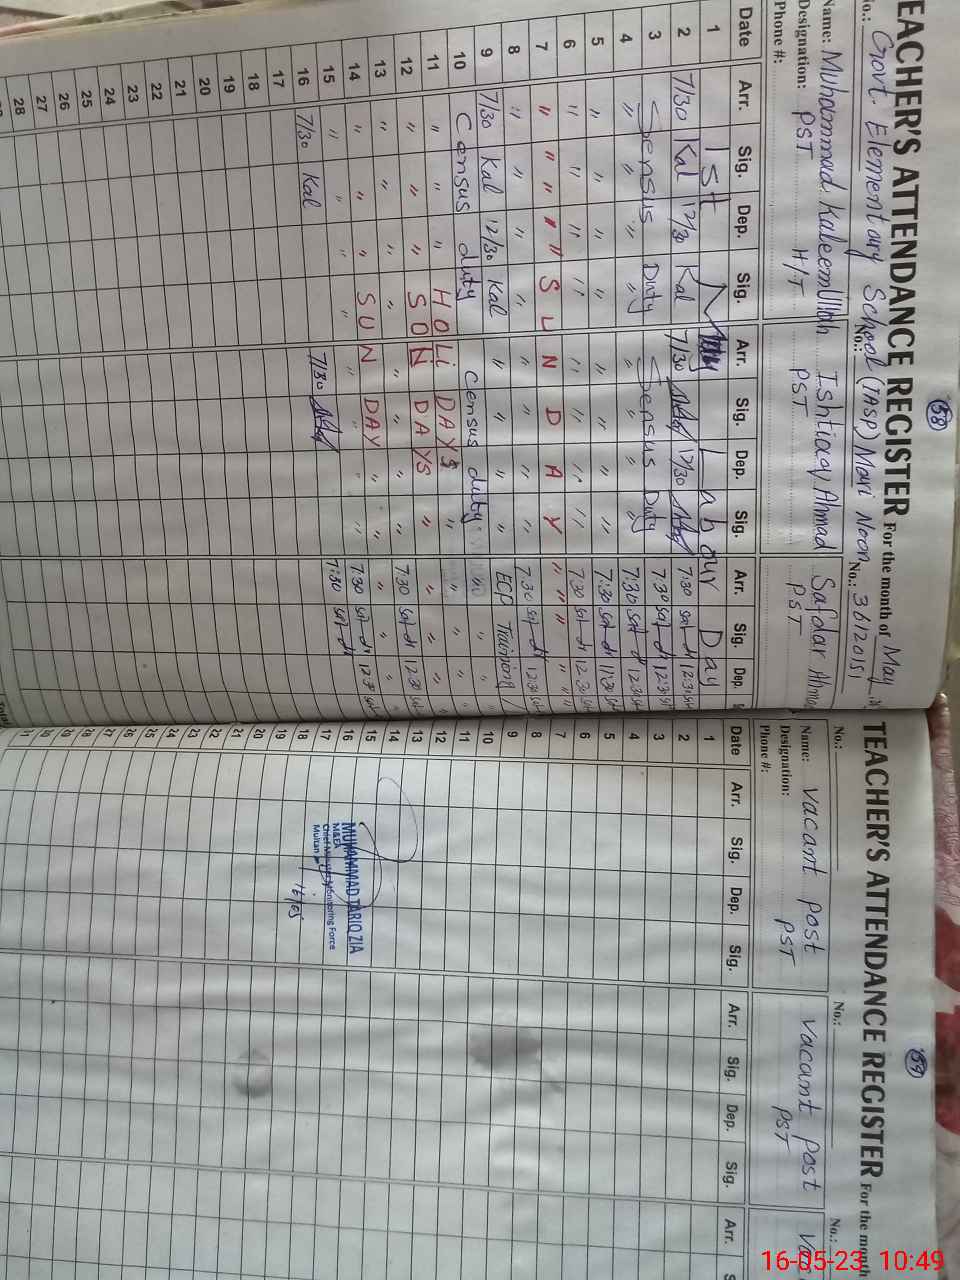 58
TEACHER'S ATTENDANCE REGISTER For the month of May
Govt. Elementary School (TASP) Mari Noon No.: 36120151
Name: Muhammad KaleemUllah Ishtiaq Ahmad Safdar Ahmad
Designation: PST H/T PST PST
Phone #:
Date Arr. Sig. Dep. Sig. Arr. Sig. Dep. Sig. Arr. Sig. Dep.
1 1st May Labour Day
2 7/30 Kal 12/30 Kal 7/30 12/30 7:30 12:30
3 Sensus Duty Sensus Duty 7:30 12:30
4 " " " " " " " " 7:30 12:30
5 " " " " " " " " 7:30 11:30
6 " " " " " " " " 7:30 12:30
7 " " " " " S U N D A Y " " " " "
8 " " " " " " " " 7:30 12:30
9 7/30 Kal 12/30 Kal " " " " ECP Training
10 Census duty Census duty " " "
11 " " " HOLI DAYS " " " "
12 " " " SUN DAYS " " " "
13 " " " " " " " " 7:30 12:30
14 " " " SUN DAY " " " " "
15 " " " " " " " " 7:30 12:30
16 7/30 Kal 7/30 7:30
17
18
19
20
21
22
23
24
25
26
27
28
Total
59
TEACHER'S ATTENDANCE REGISTER For the month
No.: No.: No.:
Name: vacant post vacant post
Designation: PST PST
Phone #:
Date Arr. Sig. Dep. Sig. Arr. Sig. Dep. Sig. Arr.
1
2
3
4
5
6
7
8
9
10
11
12
13
14
15
16
17
18
19
20
21
22
23
24
25
26
27
28
29
30
31
MUHAMMAD TARIQ ZIA
M&EA
Chief Minister's Monitoring Force
Multan
16/05
16-05-23 10:49